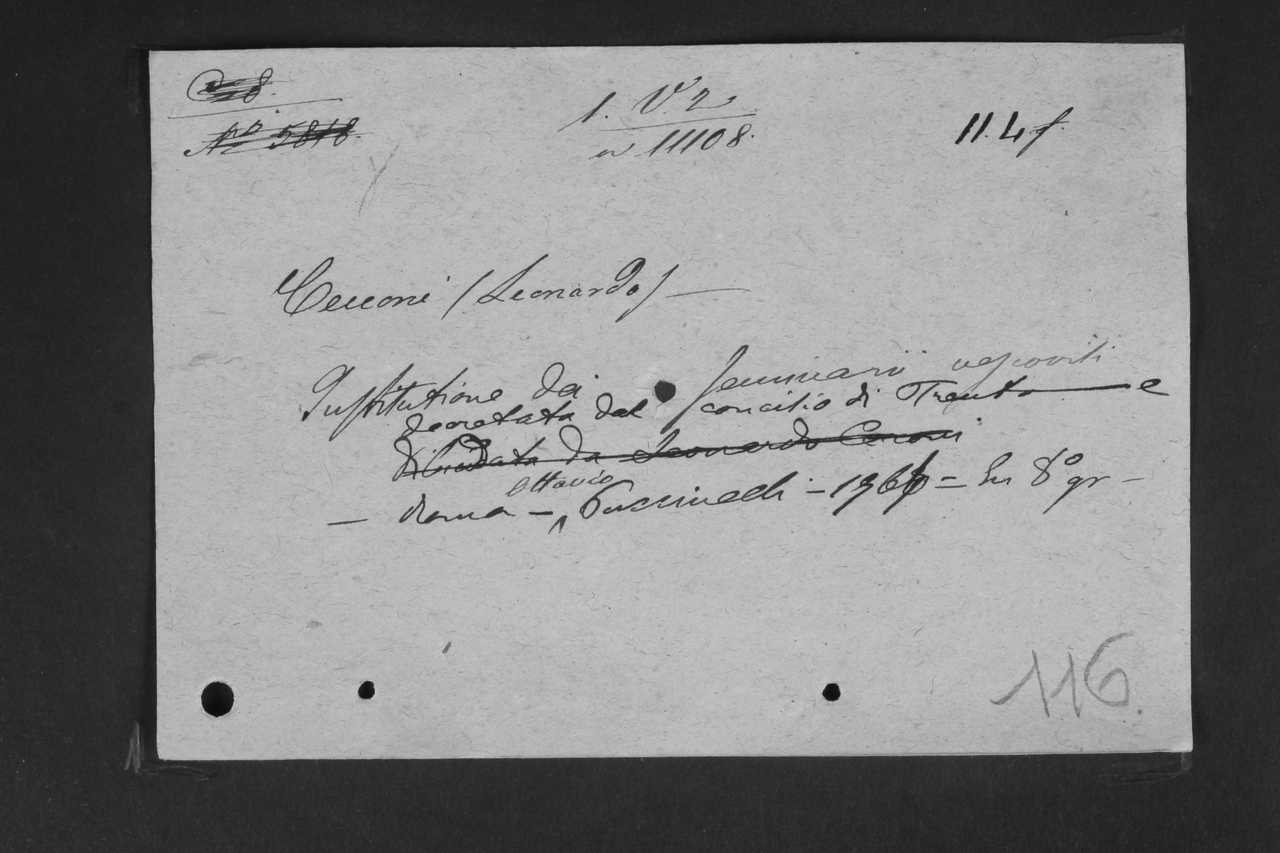 Nº 5818.
1. V. 2
n 11108.
11.4f.
Cecconi (Leonardo) —
Institutione dei Seminarii vescovili
decretata dal concilio di Trento — e
da Leonardo Cecconi
Ottavio
— Roma — Puccinelli — 1766 — In 8º gr —
116.